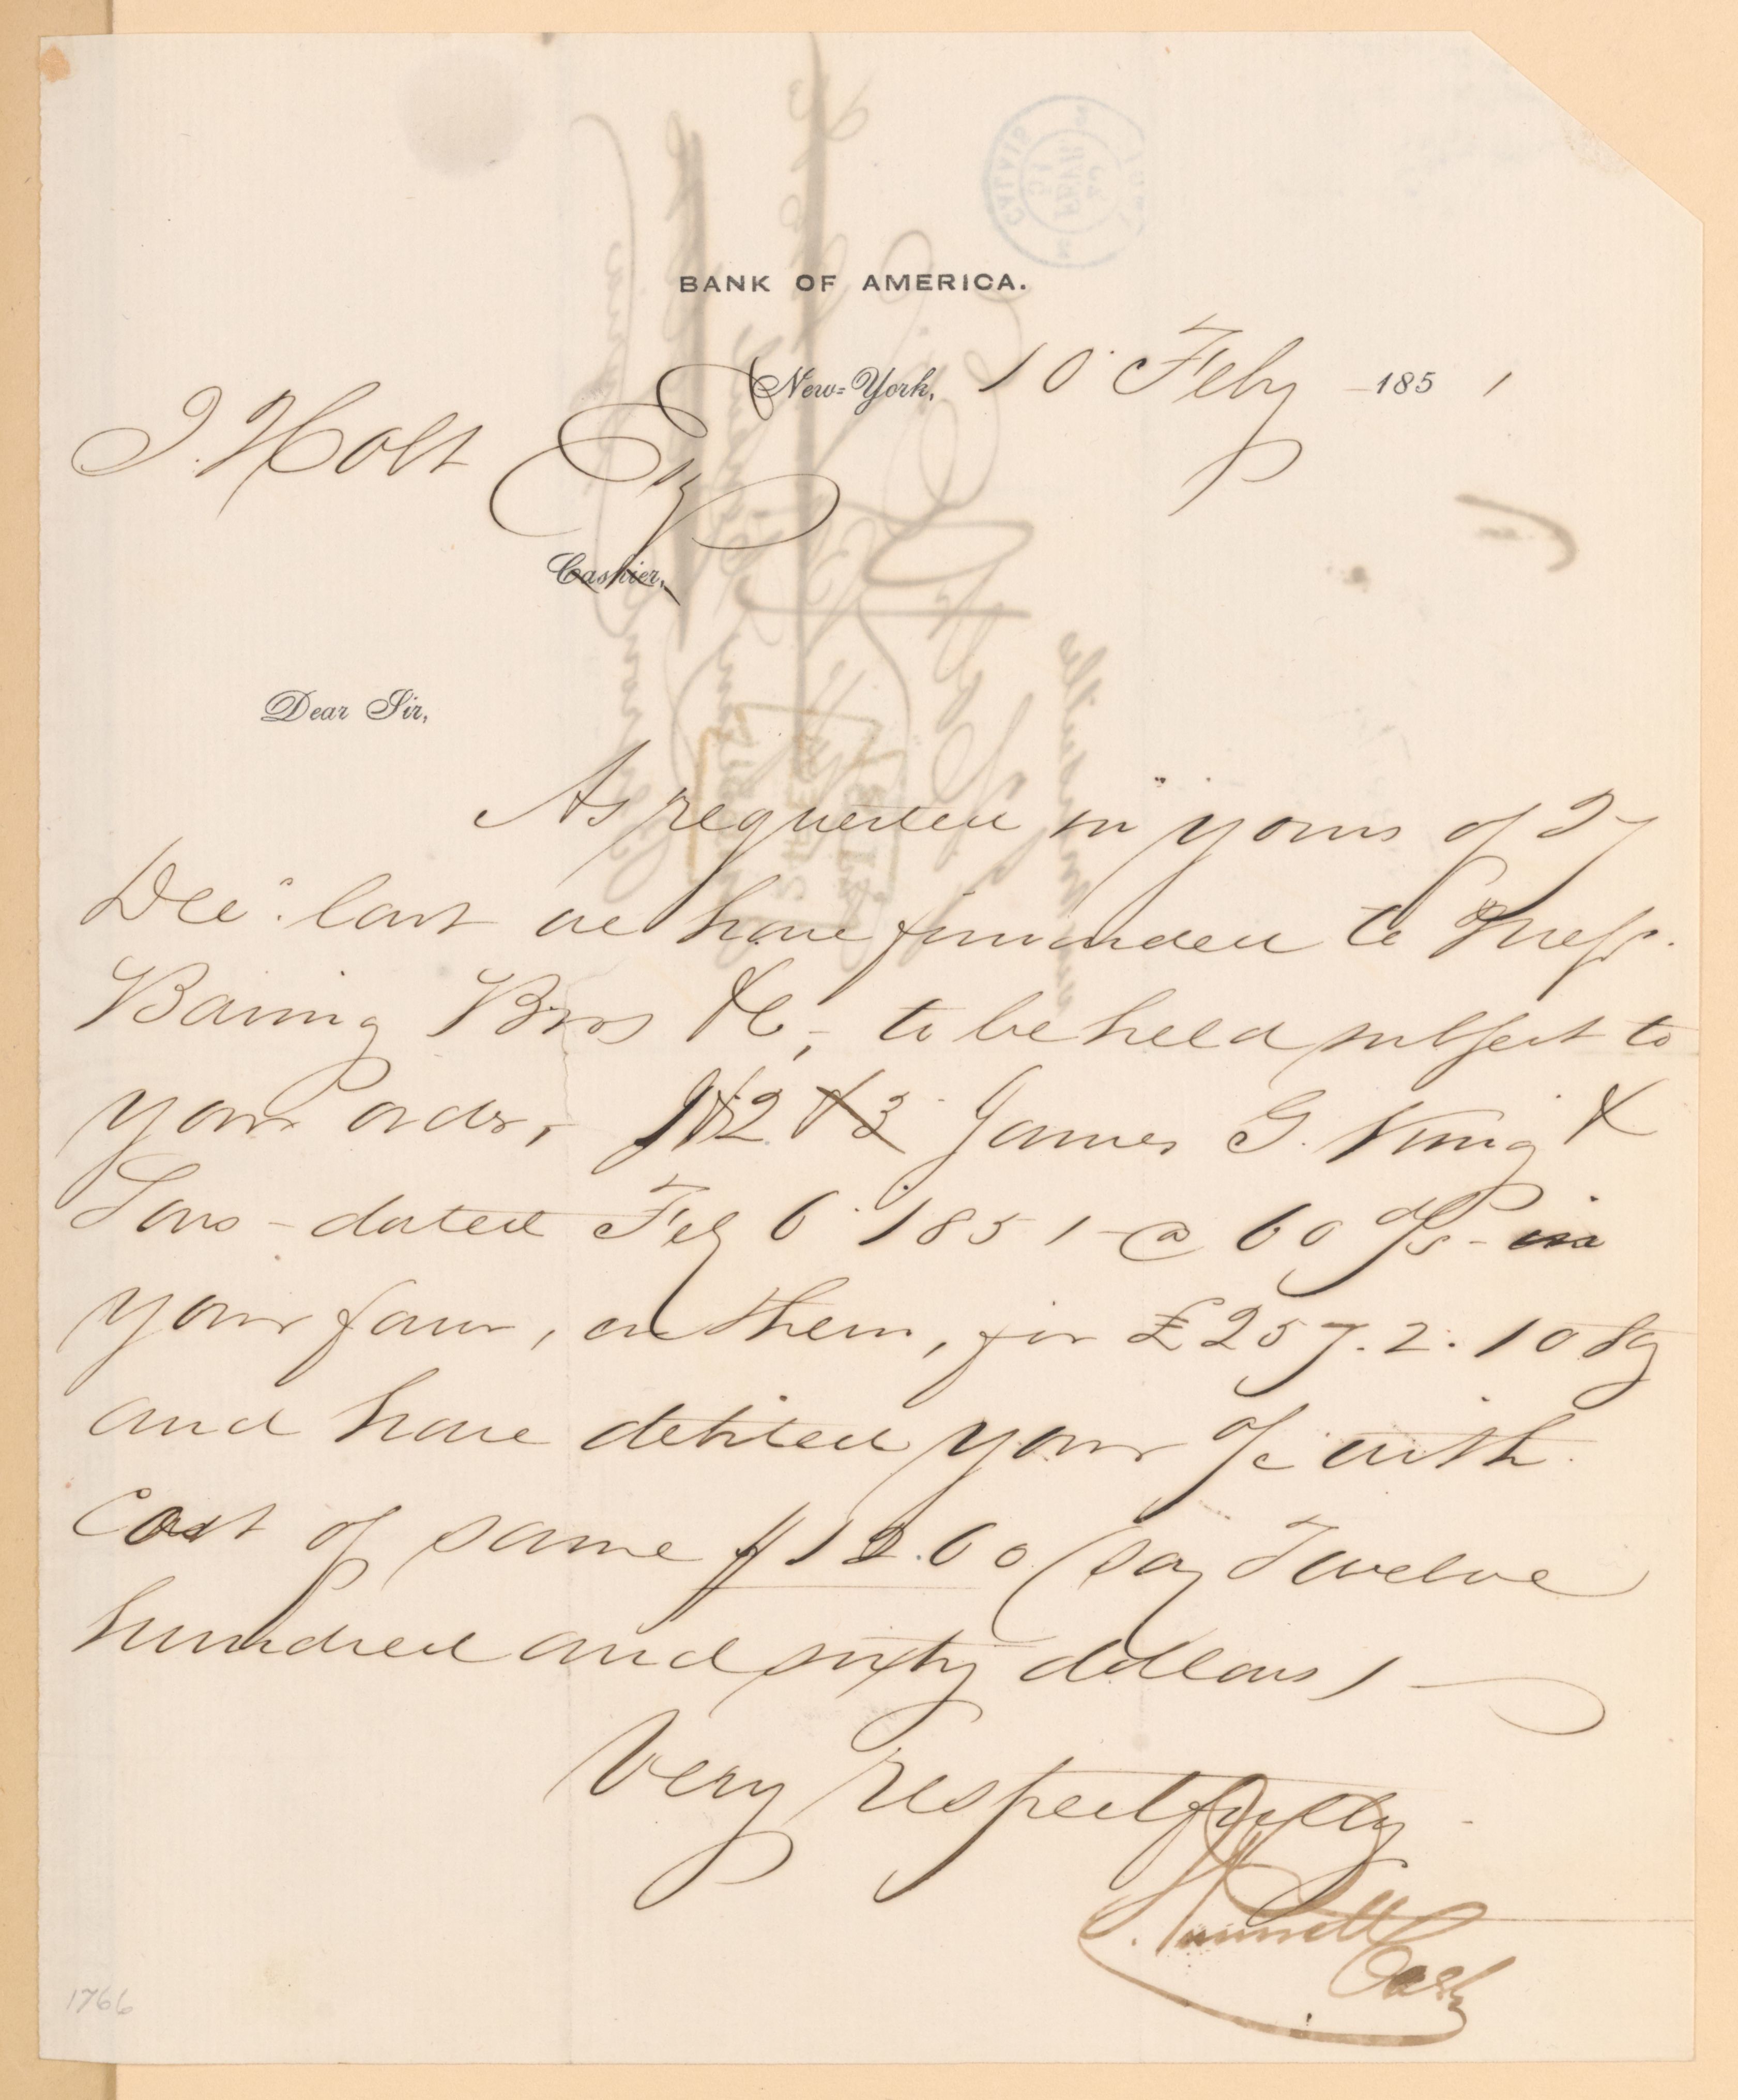 BANK OF AMERICA.
New-York, 10 Feby 1851
J. Holt Esq
Cashier,
Dear Sir,
As requested in yours of 27
Decr. last we have forwarded to Messrs.
Baring Bros & Co, to be held subject to
your order, 1 & 2 & 3 James G. King &
Sons - dated Feby 6 1851 @ 60 d/s - in
your favor, on them, for £257.2.10 Stg
and have debited your a/c with
Cost of same $1260 (say Twelve
hundred and sixty dollars)
Very respectfully
Cash
1766